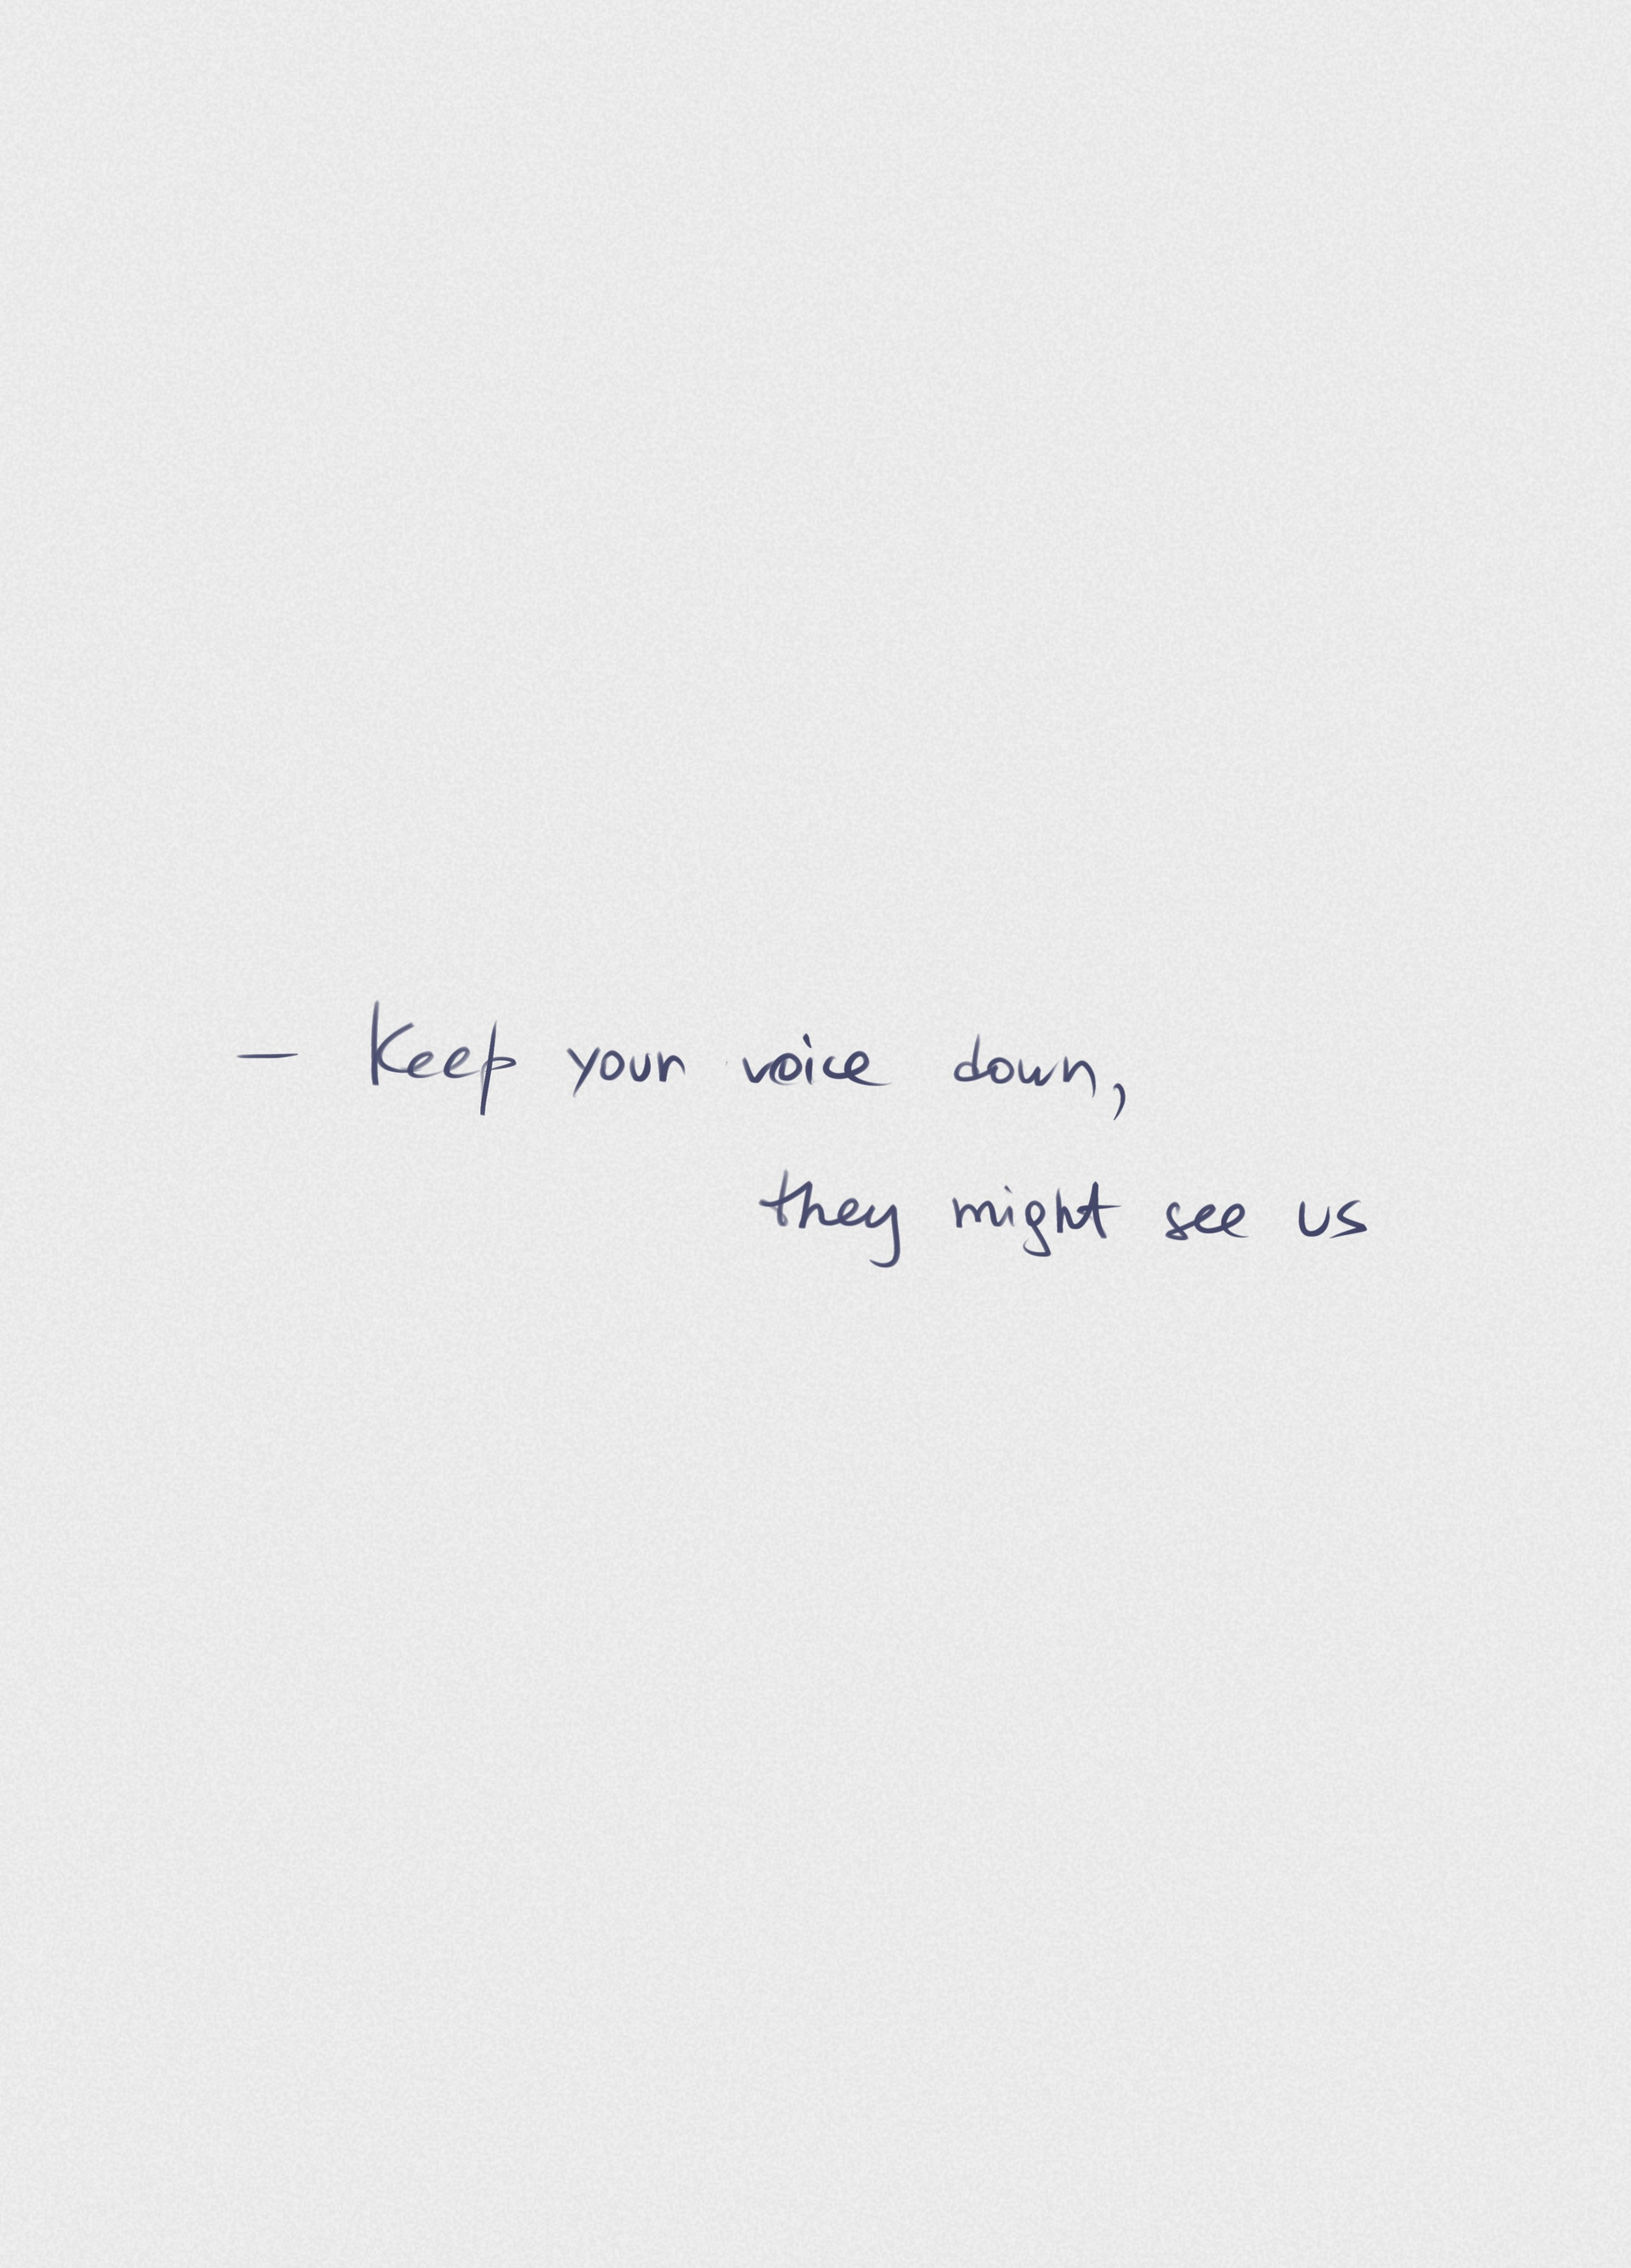 — Keep your voice down,
they might see us